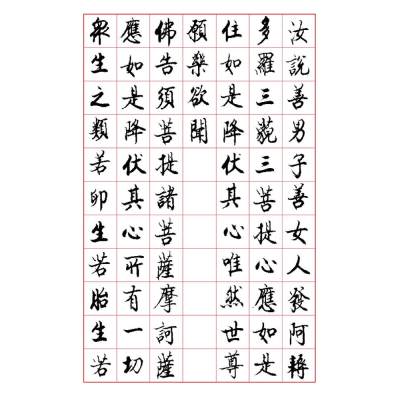 汝說善男子善女人發阿耨
多羅三藐三菩提心應如是
住如是降伏其心唯然世尊
願樂欲聞
佛告須菩提諸菩薩摩訶薩
應如是降伏其心所有一切
衆生之類若卵生若胎生若